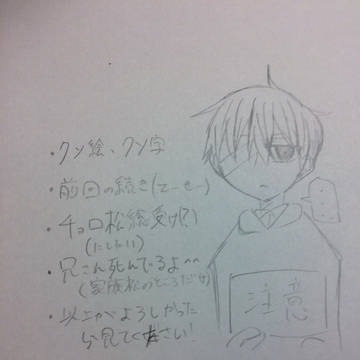 ・クソ絵、クソ字
・前回の続き(てーせー)
・チョロ松総受け(?)
(にしたい)
・兄さん死んでるよ^^
(家族松のところだけ)
・以上がよろしかった
ら見てください!
注意